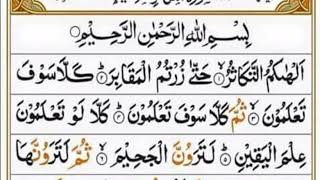 بِسْمِ اللهِ الرَّحْمٰنِ الرَّحِيْمِ
اَلْهٰىكُمُ التَّكَاثُرُ ۙ۱ حَتّٰى زُرْتُمُ الْمَقَابِرَ ؕ۲ كَلَّا سَوْفَ
تَعْلَمُوْنَ ۙ۳ ثُمَّ كَلَّا سَوْفَ تَعْلَمُوْنَ ؕ۴ كَلَّا لَوْ تَعْلَمُوْنَ
عِلْمَ الْيَقِيْنِ ؕ۵ لَتَرَوُنَّ الْجَحِيْمَ ۙ۶ ثُمَّ لَتَرَوُنَّهَا